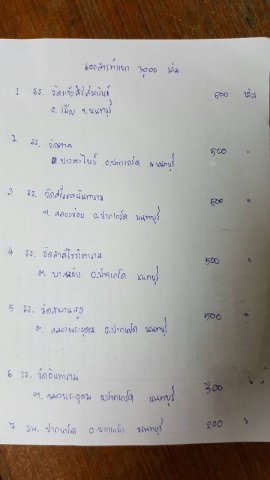 เอกสารที่แจก 3,000 เล่ม
1 รร. วัดแจ้งศิริสัมพันธ์ 500 เล่ม
อ. เมือง จ. นนทบุรี
2 รร. วัดตาล 500 "
ต บางตะไนย์ อ.ปากเกร็ด จ นนทบุรี
3 รร. วัด 500 "
ต. คลองข่อย อ.ปากเกร็ด นนทบุรี
4 รร. วัดสาลีโขภิตาราม 500 "
ต. อ.ปากเกร็ด นนทบุรี
5 รร. วัดสะพานสูง 500 "
ต. คลองพระอุดม อ.ปากเกร็ด นนทบุรี
6 รร. วัดอินทาราม 300 "
ต. คลองพระอุดม อ.ปากเกร็ด นนทบุรี
7 รพ. ปากเกร็ด อ ปากเกร็ด นนทบุรี 200 "